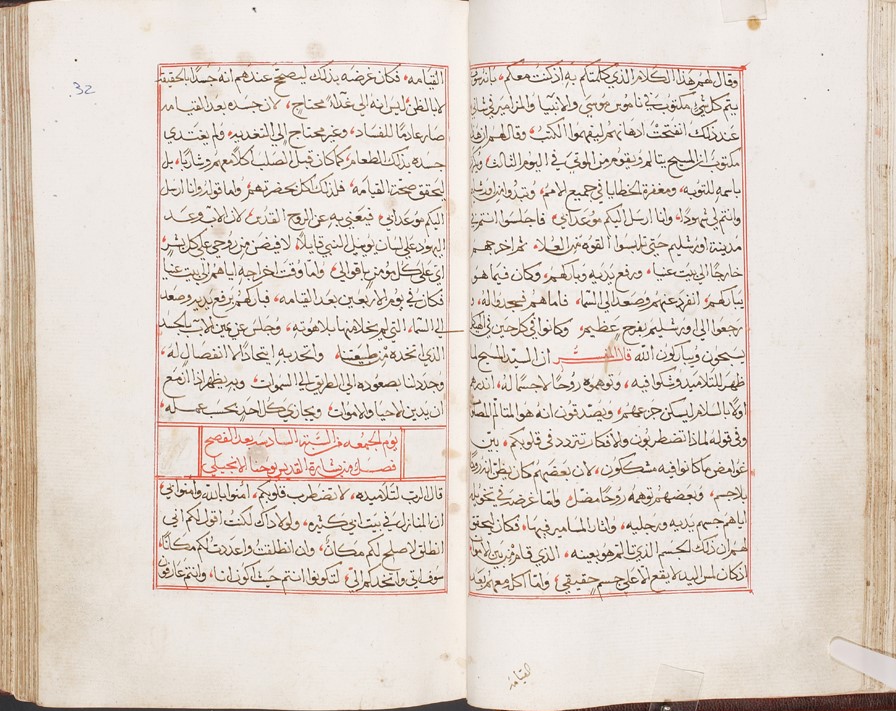 وقال لهم هذا الكلام الذي كلمتكم به اذ كنت معكم، بانه
يتم كل شي مكتوب في ناموس موسي والانبيا والمزامير
عند ذلك انفتحت اذهانهم ليفهموا الكتب، وقال لهم
مكتوب ان المسيح يتالم ويقوم من الموتي في اليوم الثالث،
باسمه للتوبه، ومغفرة الخطايا في جميع الامم،
وانتم لي شهودًا، وانا ارسل اليكم موعد ابي، فاجلسوا انتم
مدينة اورشليم حتي تلبسوا القوه من العلا، ثم اخرجهم
خارجًا الي بيت عنيا، ورفع يديه وباركهم، وكان فيما هو
يباركهم، انفرد عنهم وصعد الي السما، فاما هم فسجدوا له،
رجعوا الي اورشليم بفرح عظيم، وكانوا في كل حين في
يسبحون ويباركون الله قال المفسر ان السيد المسيح لما
ظهر للتلاميذ وشكوا فيه، وتوهموه روحًا لا جسم له،
اولًا بالسلام ليسكن جزعهم، ويصدقون انه هو المتالم
وفي قوله لماذا تضطربون والافكار تتردد في قلوبكم، بين
غوامض ما كانوا فيه مشكون، لان بعضهم كان يظن انه
بلا جسم، وبعضهم توهمه روحًا مضل، واما غرضه في
اياهم جسم يديه ورجليه، واثار المسامير فيها، فكان ليحقق
لهم ان ذلك الجسم الذي تالم هو بعينه، الذي قام من بين الاموات
اذ كان لمس اليد لا يقع الا علي جسم حقيقي، واما اكله معهم بعد
القيامه
القيامه، فكان غرضه بذلك ليصح عندهم انه جسدًا بالحقيقه
لا بالظن، ليس انه الي غداه محتاج، لان جسده بعد القيامه
صار عادمًا للفساد، وغير محتاج الي التغديه، فلم يغتدي
جسده بذلك الطعام، كما كان قبل الصلب اكلًا معهم وشاربًا، بل
ليحقق صحة القيامه، فلذلك اكل بحضرتهم، واما قوله وانا ارسل
اليكم موعد ابي، فيعني به عن الروح القدس، لان الاب وعد
اليهود علي لسان يوييل النبي قايلًا، لافيض من روحي علي كل بشر،
اي علي كل مومن باقوالي، واما وقت اخراجه اياهم الي بيت عنيا
فكان في يوم الاربعين بعد القيامه، فباركهم برفع يديه وصعد
الي السما، التي لم يخلا منها بلاهوته، وجلس عن يمين الاب بالجسد
الذي اتخده من طبيعتنا، واتحد به اتحادًا لا انفصال له،
وجدد لنا بصعوده الي الطريق الي السموات، وبه يظهر اذا ازمع
ان يدين الاحيا والاموات، ويجازي كل احد بحسب عمله
يوم الجمعه من السبة السادسه بعد الفصح
فصل من بشارة القديس يوحنا الانجيلي
قال الرب لتلاميذه، لا تضطرب قلوبكم، امنوا بالله وامنوا بي،
ان المنازل في بيت ابي كثيره، ولولا ذاك لكنت اقول لكم اني
انطلق لاصلح لكم مكان، وان انطلقت واعددت لكم مكانًا،
سوف اتي واتخدكم الي، لتكونوا انتم حيث اكون انا، وانتم عارفون
32